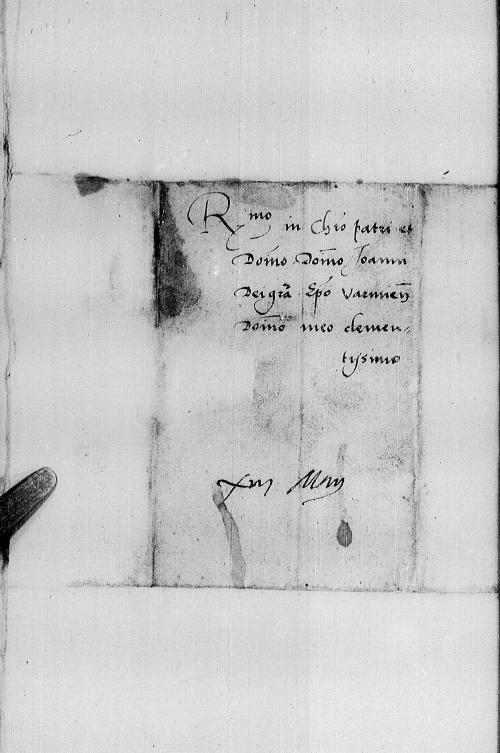 Rmo in Chro patri et
Domo Domo Joanni
Dei gra Epo Varmien
Domo meo clemen-
tissimo
xvi Maij